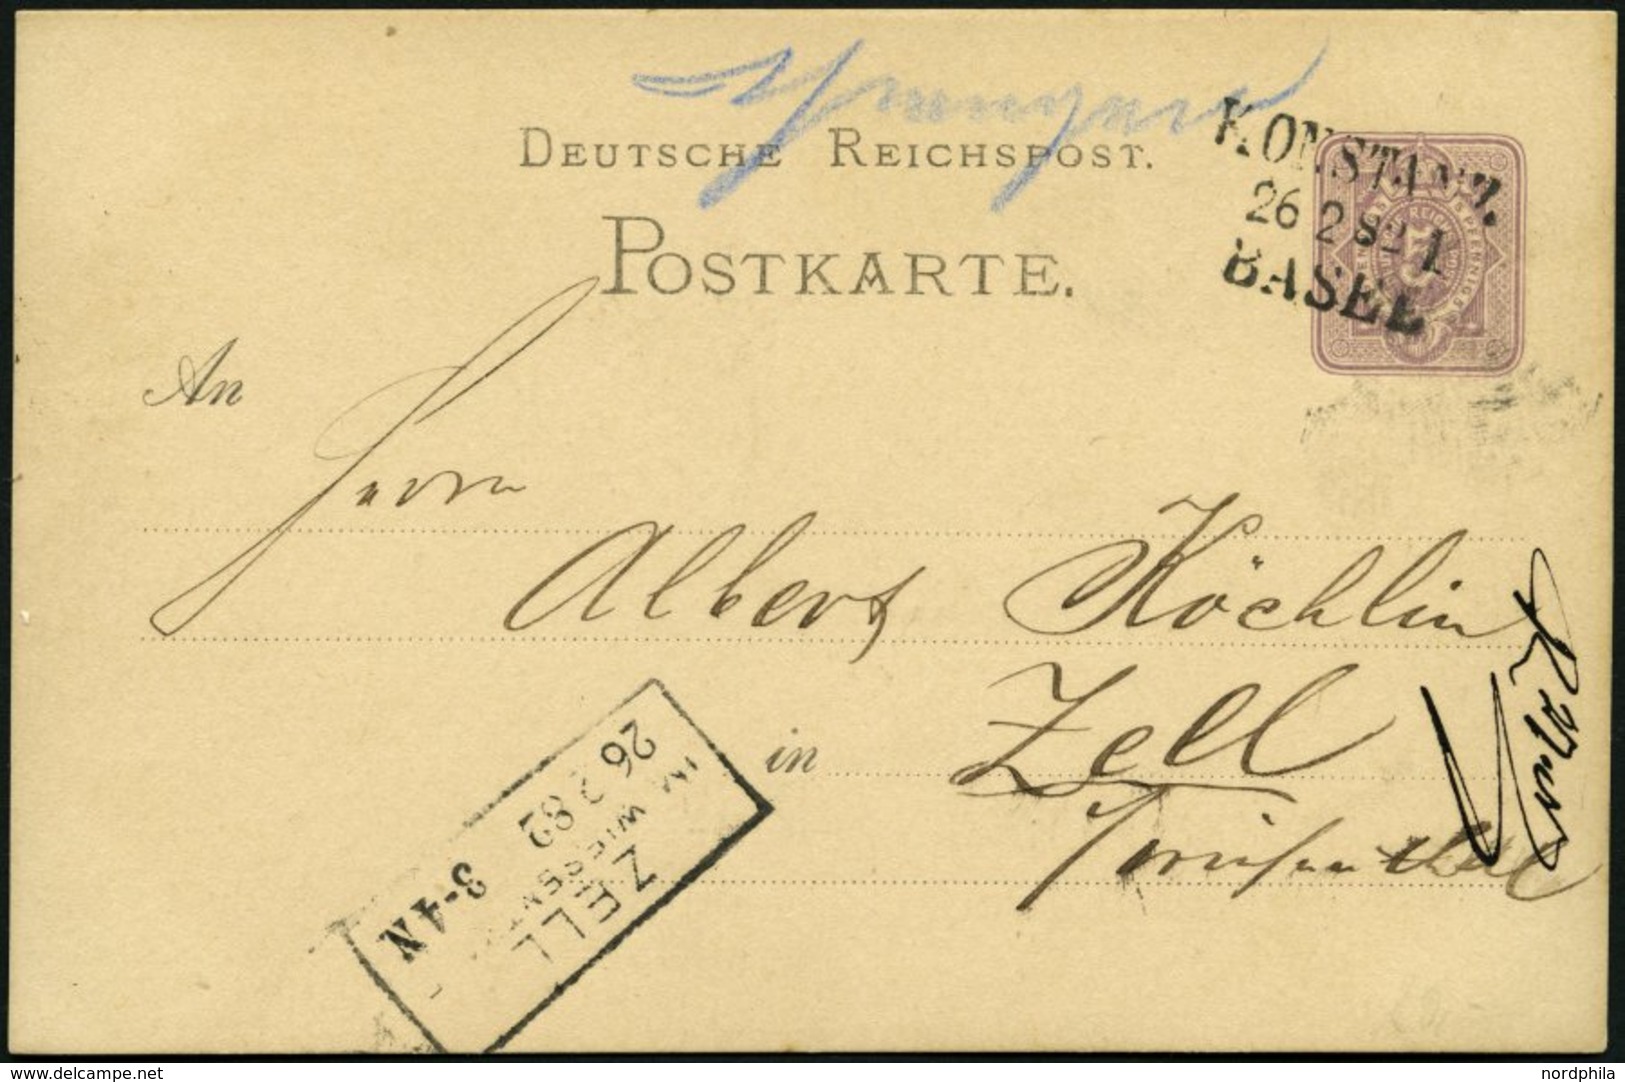 DEUTSCHE REICHSPOST.
KONSTANZ.
26 2 82 I
BASEL
POSTKARTE.
An
Herrn
Albert Köchlin
in Zell
Wiesenthal
ZELL
IM WIESENT
26 2 82
3-4N
www.delcampe.net
nordphila